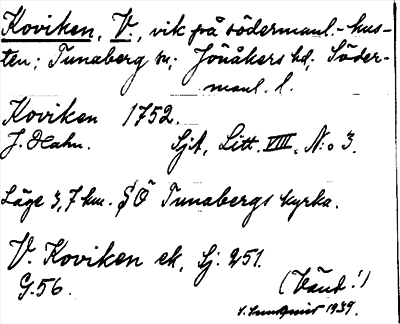 Koviken, V., vik på södermanl.-kus-
ten; Tunaberg sn; Jönåkers hd; Söder-
manl. l.
Koviken 1752.
J. Hahn. Sjk, Litt. VIII. N:o 3.
Läge 3,7 km. SÖ Tunabergs kyrka.
V. Koviken ek, Sj: 251.
G.56. (Vänd!)
1939.